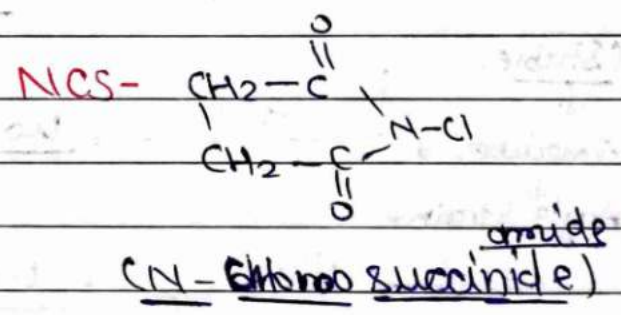 O
||
NCS- CH2-C \
| N-Cl
CH2-C /
||
O
amide
(N-Chloroo succinide)